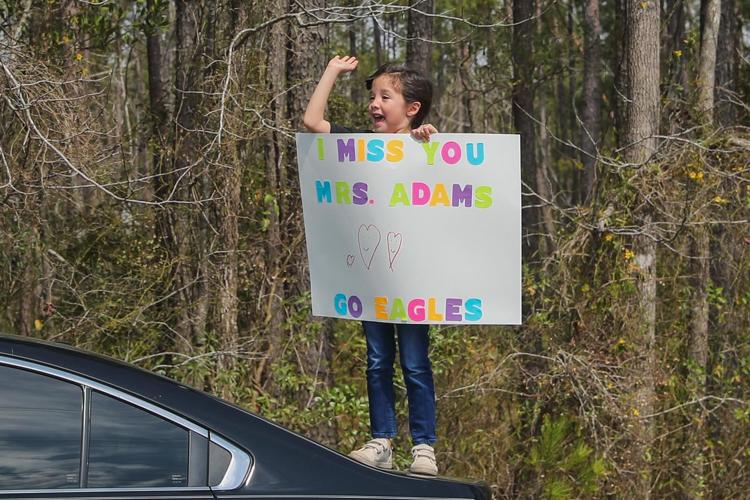 I MISS YOU
MRS. ADAMS
GO EAGLES